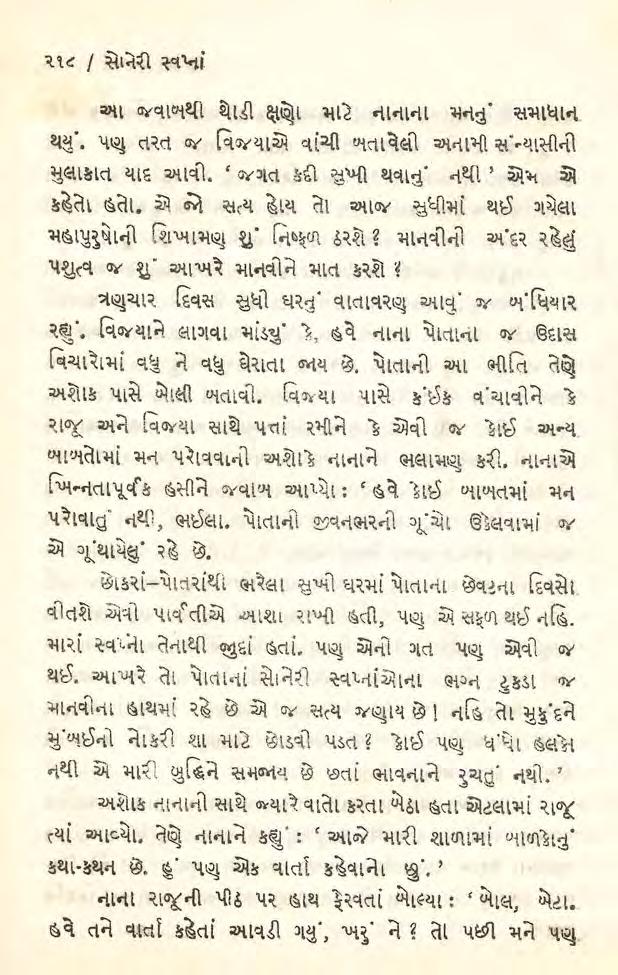 ૨૧૯ / સોનેરી સ્વપ્નાં
આ જવાબથી થોડી ક્ષણો માટે નાનાના મનનું સમાધાન
થયું. પણ તરત જ વિજયાએ વાંચી બતાવેલી અનામી સંન્યાસીની
મુલાકાત યાદ આવી. ‘જગત કદી સુખી થવાનું નથી’ એમ એ
કહેતો હતો. એ જો સત્ય હોય તો આજ સુધીમાં થઈ ગયેલા
મહાપુરુષોની શિખામણ શું નિષ્ફળ ઠરશે? માનવીની અંદર રહેલું
પશુત્વ જ શું આખરે માનવીને માત કરશે?
ત્રણચાર દિવસ સુધી ઘરનું વાતાવરણ આવું જ બંધિયાર
રહ્યું. વિજયાને લાગવા માંડ્યું કે, હવે નાના પોતાના જ ઉદાસ
વિચારોમાં વધુ ને વધુ ઘેરાતા જાય છે. પોતાની આ ભીતિ તેણે
અશોક પાસે બોલી બતાવી. વિજયા પાસે કંઈક વંચાવીને કે
રાજૂ અને વિજયા સાથે પત્તાં રમીને કે એવી જ કોઈ અન્ય
બાબતોમાં મન પરોવવાની અશોકે નાનાને ભલામણ કરી. નાનાએ
ખિન્નતાપૂર્વક હસીને જવાબ આપ્યો: ‘હવે કોઈ બાબતમાં મન
પરોવાતું નથી, ભઈલા. પોતાની જીવનભરની ગૂંચો ઉકેલવામાં જ
એ ગૂંથાયેલું રહે છે.
છોકરાં-પોતરાંથી ભરેલા સુખી ઘરમાં પોતાના છેવટના દિવસો
વીતશે એવી પાર્વતીએ આશા રાખી હતી, પણ એ સફળ થઈ નહિ.
મારાં સ્વપ્નો તેનાથી જુદાં હતાં. પણ એની ગત પણ એવી જ
થઈ. આખરે તો પોતાનાં સોનેરી સ્વપ્નાંઓના ભગ્ન ટુકડા જ
માનવીના હાથમાં રહે છે એ જ સત્ય જણાય છે! નહિ તો મુકુંદને
મુંબઈની નોકરી શા માટે છોડવી પડત? કોઈ પણ ધંધો હલકો
નથી એ મારી બુદ્ધિને સમજાય છે છતાં ભાવનાને રુચતું નથી.’
અશોક નાનાની સાથે જ્યારે વાતો કરતા બેઠા હતા એટલામાં રાજૂ
ત્યાં આવ્યો. તેણે નાનાને કહ્યું: ‘આજે મારી શાળામાં બાળકોનું
કથા-કથન છે. હું પણ એક વાર્તા કહેવાનો છું.’
નાના રાજૂની પીઠ પર હાથ ફેરવતાં બોલ્યા: ‘બોલ, બેટા.
હવે તને વાર્તા કહેતાં આવડી ગયું, ખરું ને? તો પછી મને પણ